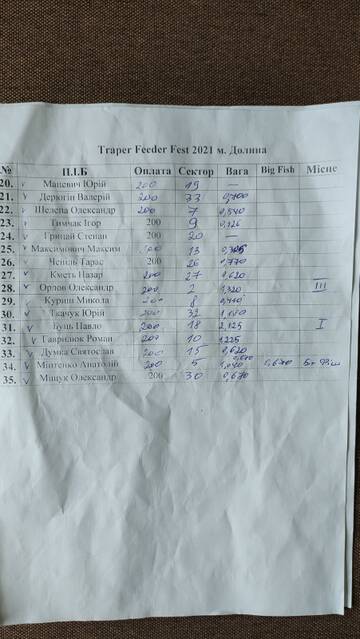 Traper Feeder Fest 2021 м. Долина
№ П.І.Б Оплата Сектор Вага Big Fish Місце
20. v Мацевич Юрій 200 19 —
21. v Дерюгін Валерій 200 33 0,700
22. v Шелепа Олександр 200 7 0,840
23. v Тимчак Ігор 200 9
24. v Грицай Степан 200 20 —
25. v Максимович Максим 200 13
26. v Чепіль Тарас 200 26 0,770
27. v Кметь Назар 200 27 0,620
28. v Орлов Олександр 200 2 1,320 III
29. v Куриш Микола 200 8
30. v Ткачук Юрій 200 32
31. v Буць Павло 200 18 2,125 I
32. v Гаврилюк Роман 200 10 1,225
33. v Думка Святослав 200 15 0,620
34. v Мінтенко Анатолій 200 5 0,670
35. v Мищук Олександр 200 30 0,670